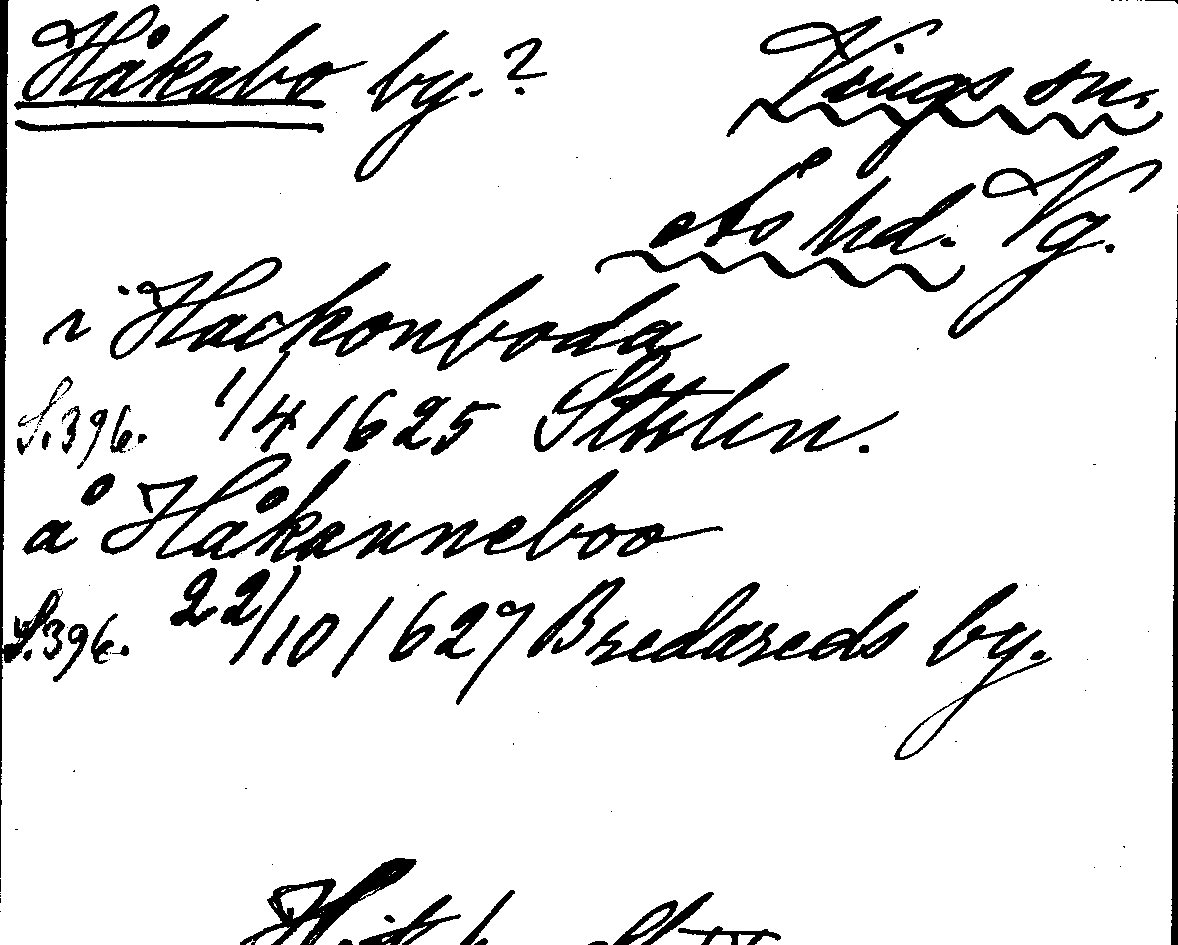 Håkabo by.? Vings sn.
Ås hd. Vg.
i Hackonboda
S.396. 1/4 1625 Sthlm.
å Håkanneboo
S.396. 22/10 1627 Bredareds by.